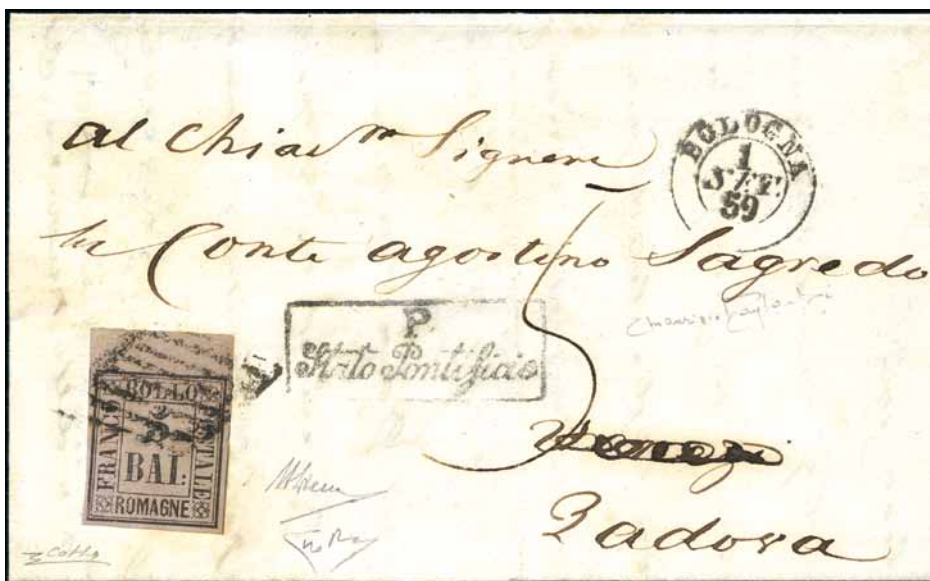 al Chiar.mo Signore
BOLOGNA
1
SET.
59
Conte agostino Sagredo
P.
Stato Pontificio
BOLLO
FRANCO
POSTALE
BAI:
ROMAGNE
Padova